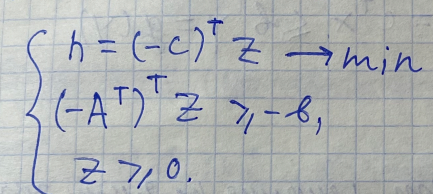 h = (-c)ᵀ z → min
(-Aᵀ)ᵀ z ⩾ -b,
z ⩾ 0.